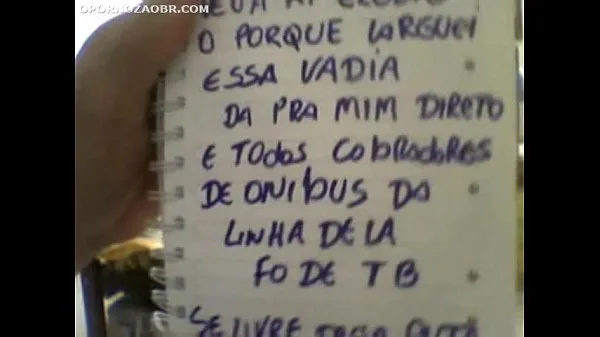 OPORNOZAOBR.COM
O PORQUE LARGUEI
ESSA VADIA
DA PRA MIM DIRETO
E TODOS COBRADORES
DE ONIBUS DA
LINHA DE LA
FODE TB
SE LIVRE